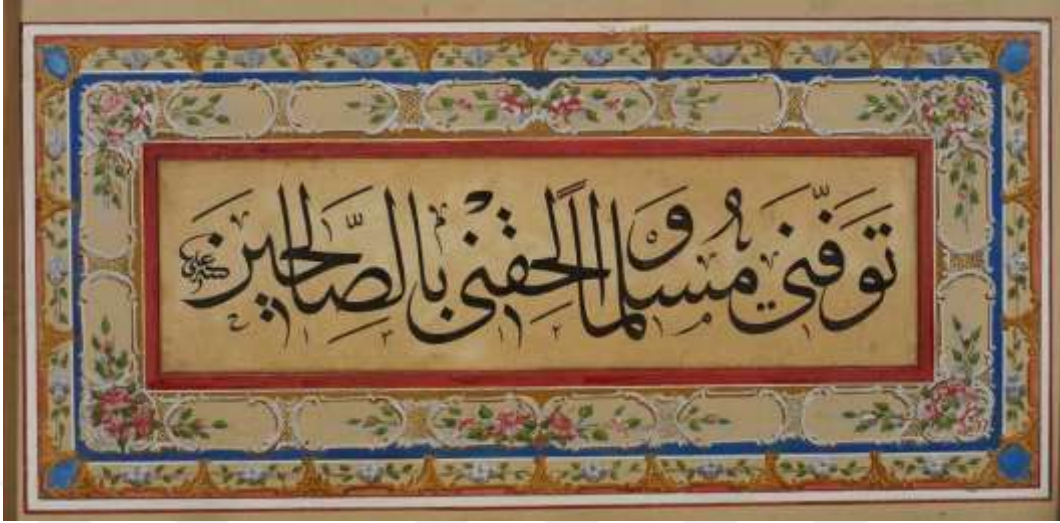 توفنى مسلما و الحقنى بالصالحين